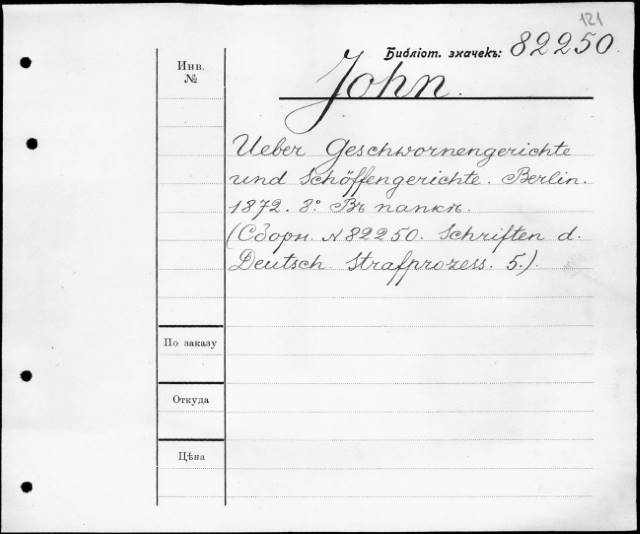 121
Библіот. значекъ: 82250.
Инв.
№
John.
Ueber Geschwornengerichte
und Schöffengerichte. Berlin.
1872. 8° Въ папкѣ.
(Сборн. № 82250. Schriften d.
Deutsch. Strafprozess. 5.).
По заказу
Откуда
Цѣна